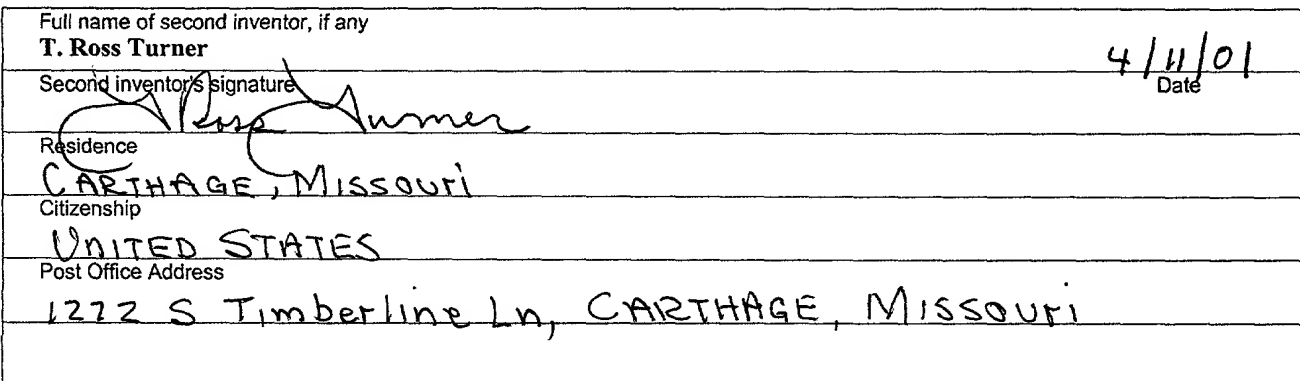 Full name of second inventor, if any
T. Ross Turner
4/11/01
Second inventor's signature
Date
T Ross Turner
Residence
CARTHAGE, MISSOURI
Citizenship
UNITED STATES
Post Office Address
1222 S Timberline Ln, CARTHAGE, MISSOURI